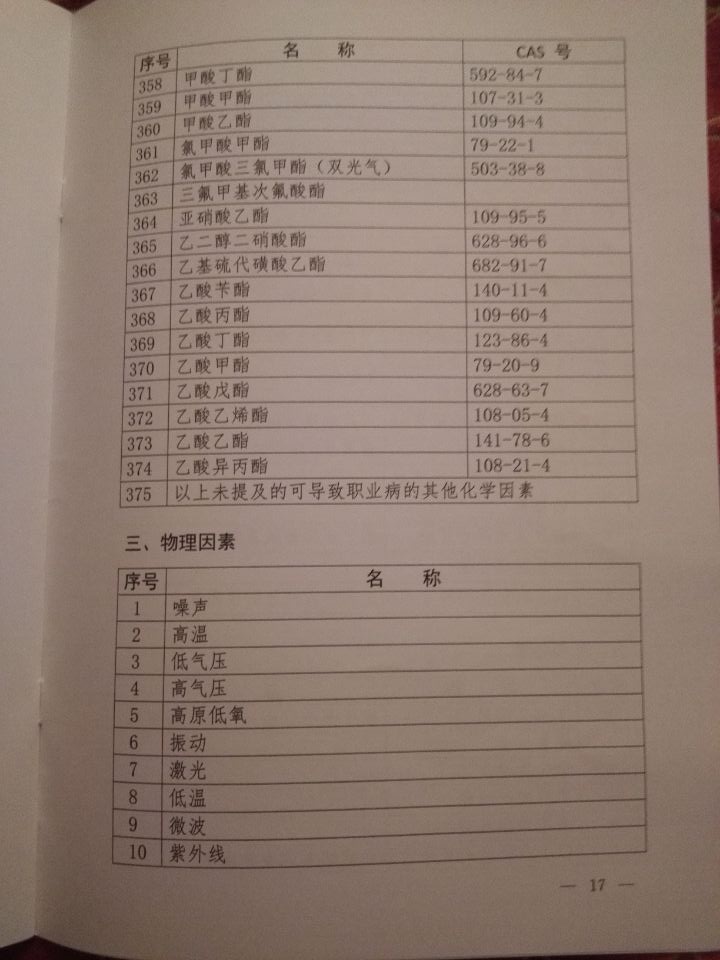 序号 名 称 CAS 号
358 甲酸丁酯 592-84-7
359 甲酸甲酯 107-31-3
360 甲酸乙酯 109-94-4
361 氯甲酸甲酯 79-22-1
362 氯甲酸三氯甲酯（双光气） 503-38-8
363 三氟甲基次氟酸酯
364 亚硝酸乙酯 109-95-5
365 乙二醇二硝酸酯 628-96-6
366 乙基硫代磺酸乙酯 682-91-7
367 乙酸苄酯 140-11-4
368 乙酸丙酯 109-60-4
369 乙酸丁酯 123-86-4
370 乙酸甲酯 79-20-9
371 乙酸戊酯 628-63-7
372 乙酸乙烯酯 108-05-4
373 乙酸乙酯 141-78-6
374 乙酸异丙酯 108-21-4
375 以上未提及的可导致职业病的其他化学因素
三、物理因素
序号 名 称
1 噪声
2 高温
3 低气压
4 高气压
5 高原低氧
6 振动
7 激光
8 低温
9 微波
10 紫外线
— 17 —